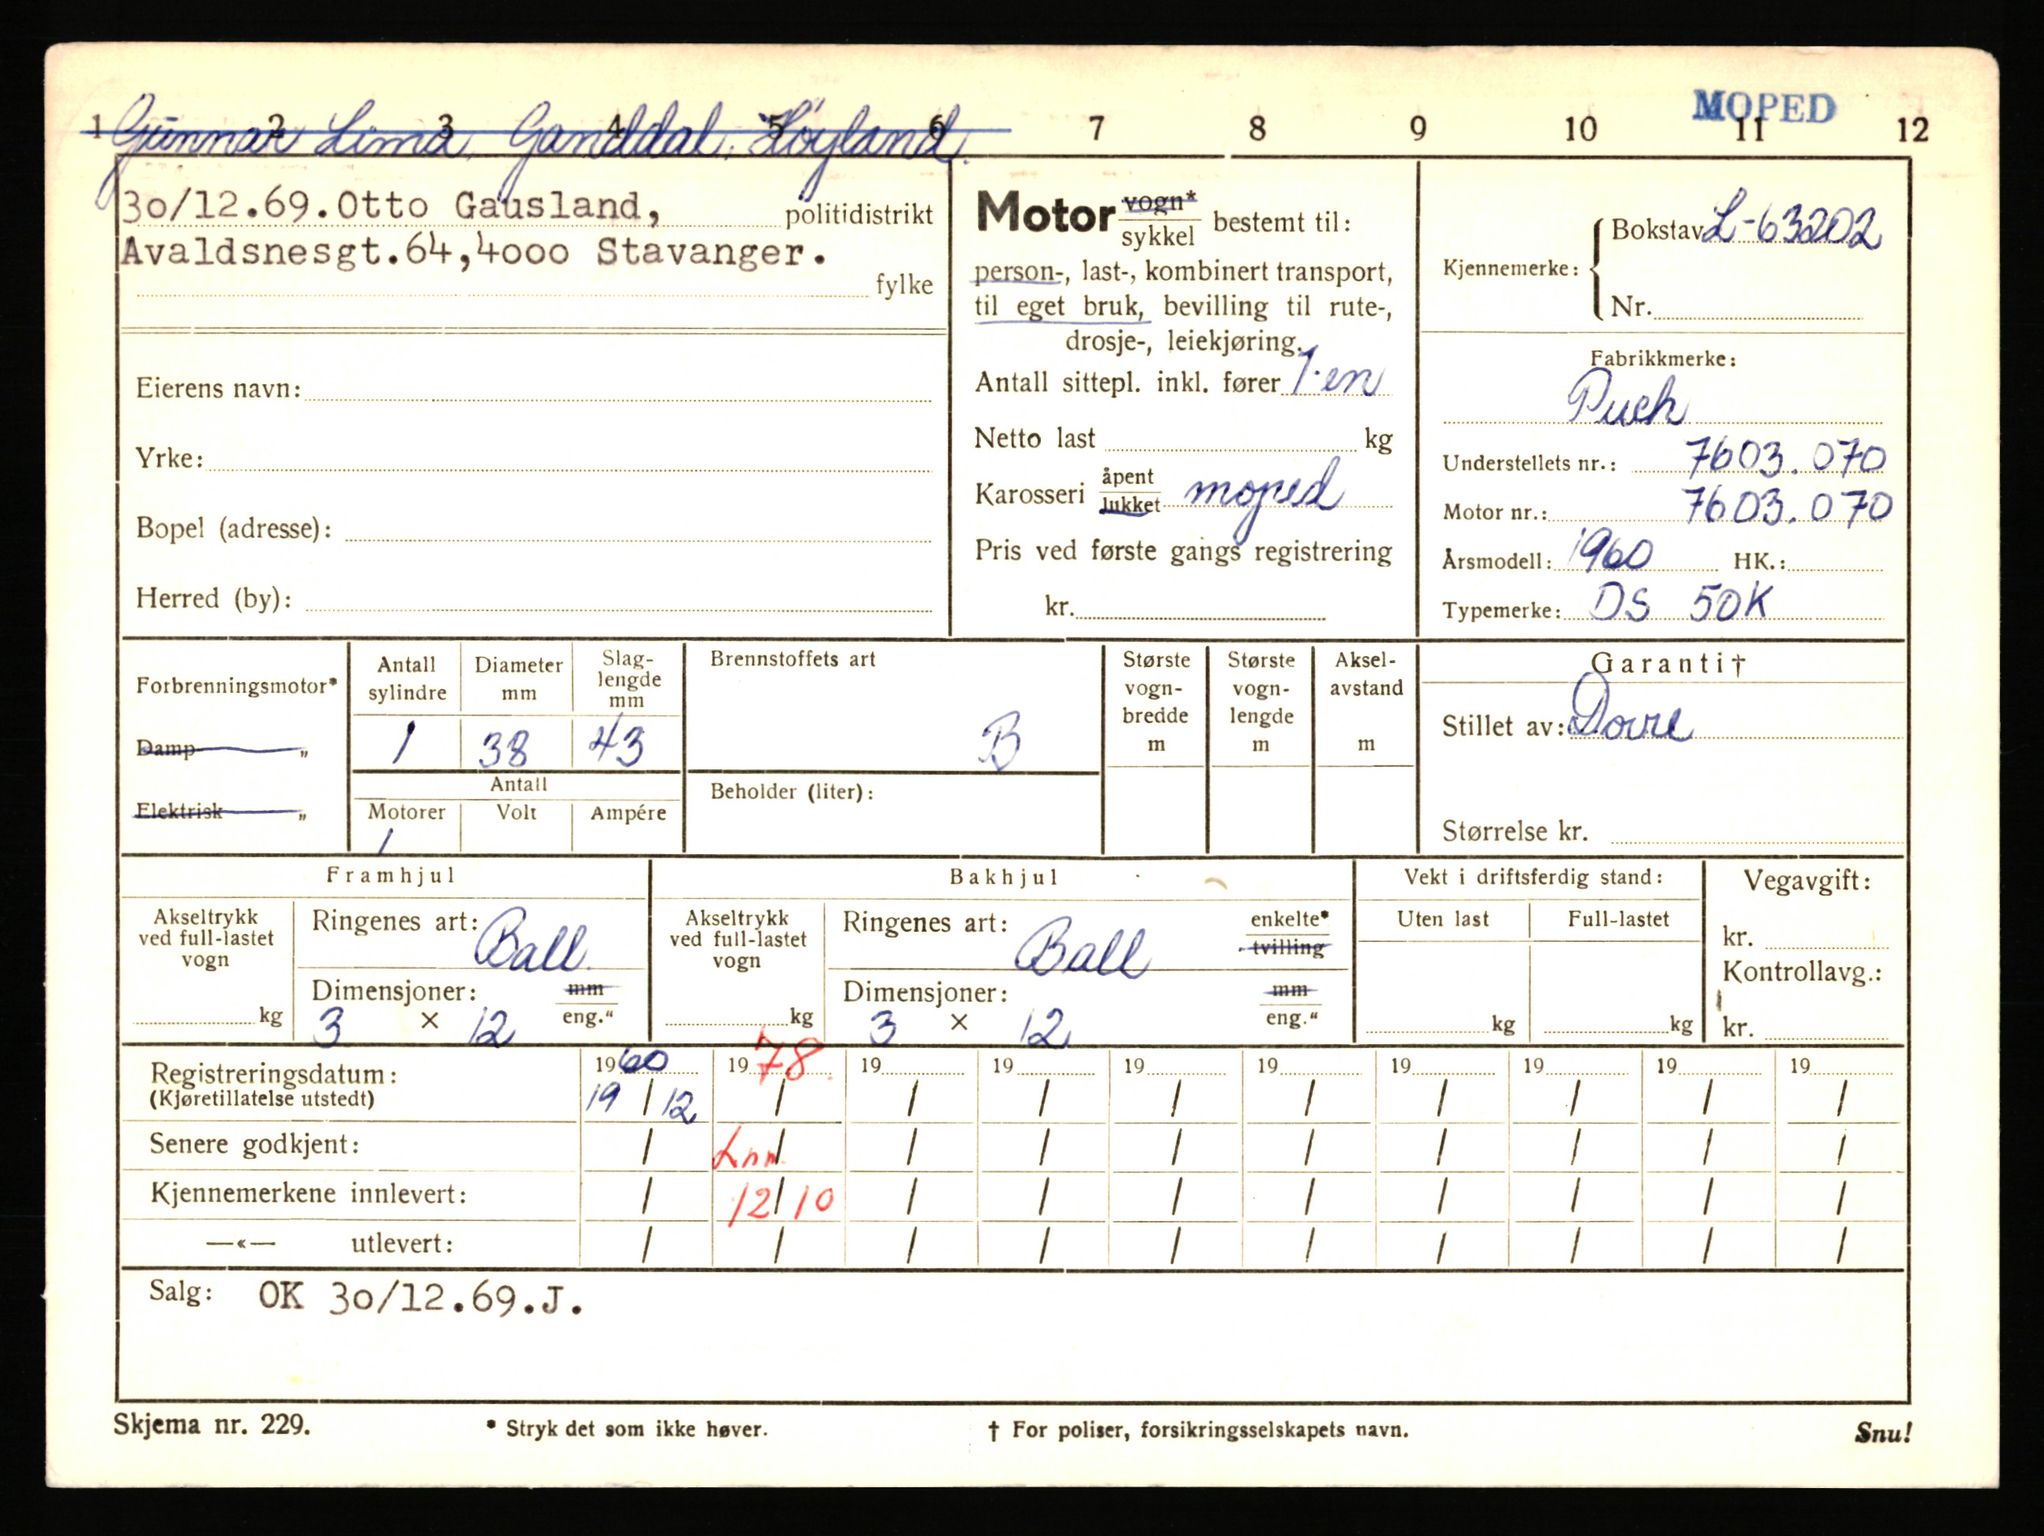 MOPED
1 2 3 4 5 6 7 8 9 10 11 12
Gunnar Lima, Ganddal, Høyland.
30/12.69.Otto Gausland, politidistrikt
Avaldsnesgt.64,4000 Stavanger.
fylke
Eierens navn:
Yrke:
Bopel (adresse):
Herred (by):
Motor vogn* sykkel bestemt til:
person-, last-, kombinert transport,
til eget bruk, bevilling til rute-,
drosje-, leiekjøring.
Antall sittepl. inkl. fører 1-en
Netto last kg
Karosseri åpent lukket moped
Pris ved første gangs registrering
kr.
Kjennemerke: Bokstav L-63202
Nr.
Fabrikkmerke:
Puch
Understellets nr.: 7603.070
Motor nr.: 7603.070
Årsmodell: 1960 HK.:
Typemerke: DS 50K
Forbrenningsmotor*
Damp „
Elektrisk „
Antall sylindre Diameter mm Slag-lengde mm
1 38 43
Antall
Motorer Volt Ampére
1
Brennstoffets art
B
Beholder (liter):
Største vogn-bredde m Største vogn-lengde m Aksel-avstand m
Garanti†
Stillet av: Dovre
Størrelse kr.
Framhjul
Akseltrykk ved full-lastet vogn
kg
Ringenes art: Ball
Dimensjoner: mm
3 × 12 eng."
Bakhjul
Akseltrykk ved full-lastet vogn
kg
Ringenes art: Ball enkelte* tvilling
Dimensjoner: mm
3 × 12 eng."
Vekt i driftsferdig stand:
Uten last Full-lastet
kg kg
Vegavgift:
kr.
Kontrollavg.:
kr.
Registreringsdatum: 1960 1978 19 19 19 19 19 19 19 19
(Kjøretillatelse utstedt) 19/12 / / / / / / / / /
Senere godkjent: / / / / / / / / / /
Kjennemerkene innlevert: / 12/10 / / / / / / / /
—«— utlevert: / / / / / / / / / /
Salg: OK 30/12.69.J.
Skjema nr. 229. * Stryk det som ikke høver. † For poliser, forsikringsselskapets navn. Snu!